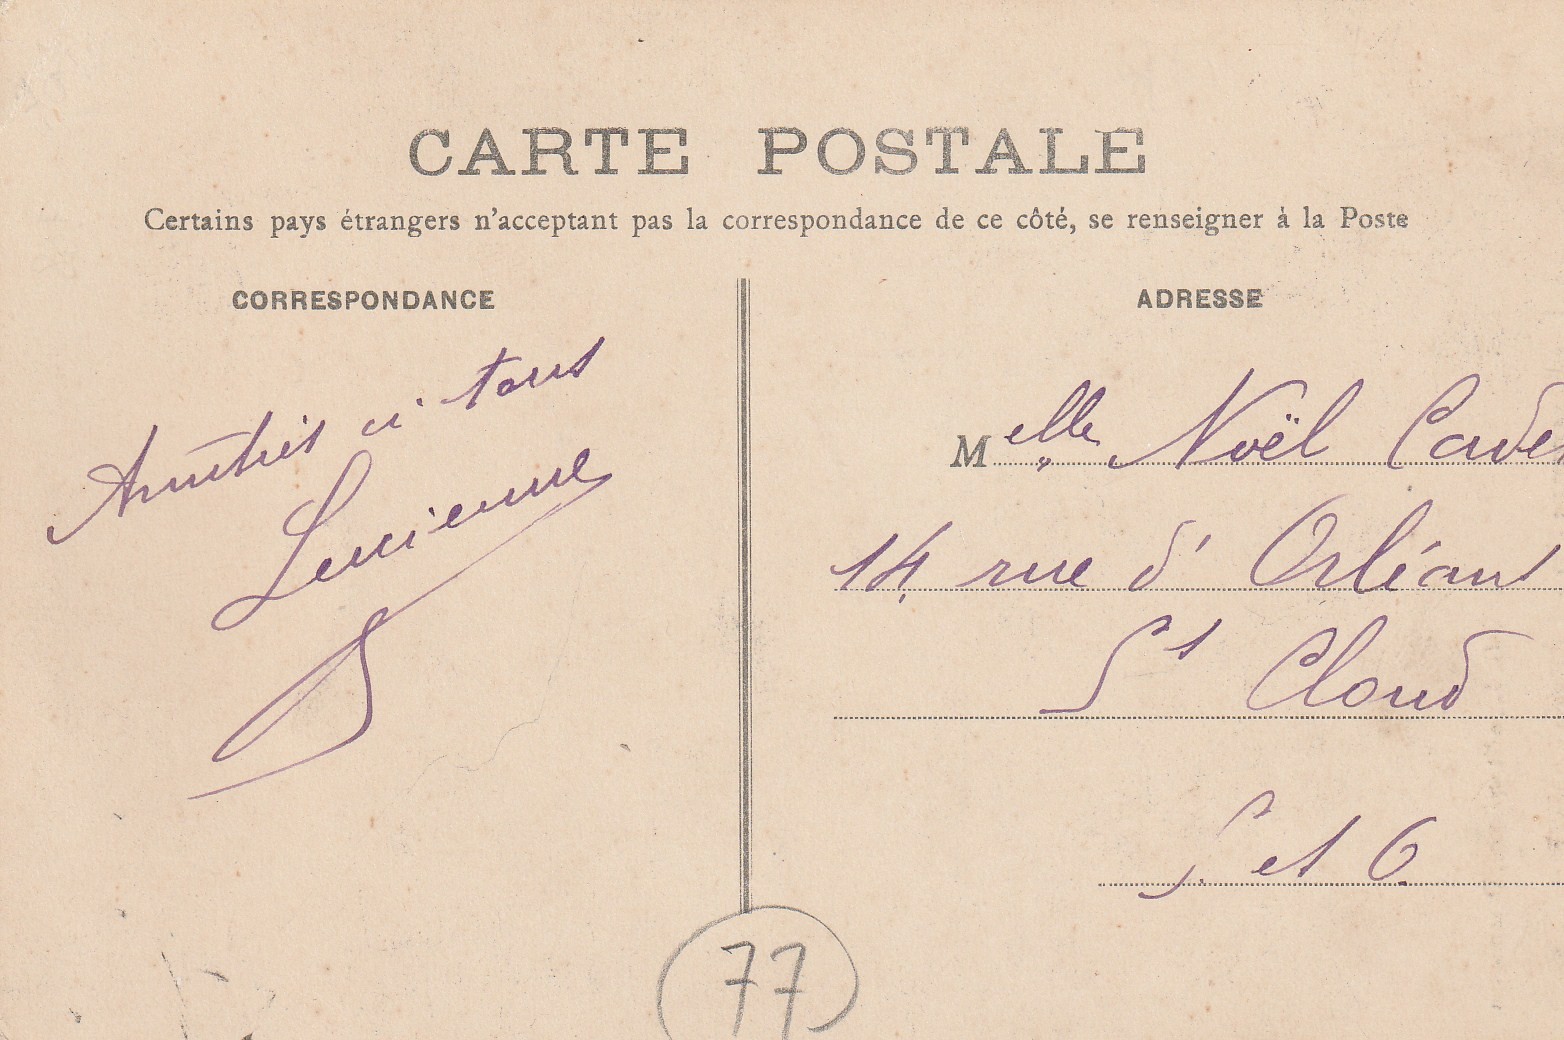 CARTE POSTALE
Certains pays étrangers n'acceptant pas la correspondance de ce côté, se renseigner à la Poste
CORRESPONDANCE
Amitiés à tous
Lucienne
ADRESSE
Melle Noël
14, rue d'Orléans
St Cloud
S. et O.
77